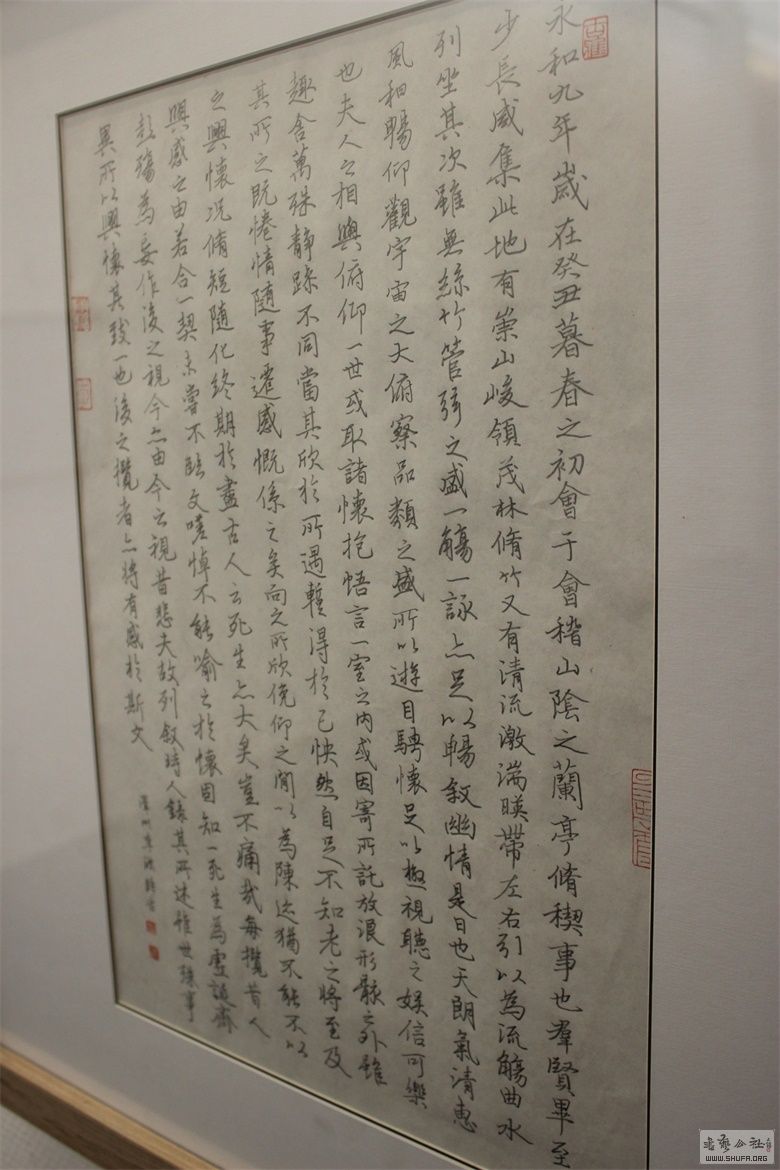 永和九年歲在癸丑暮春之初會于會稽山陰之蘭亭脩稧事也羣賢畢至
少長咸集此地有崇山峻領茂林脩竹又有清流激湍暎帶左右引以為流觴曲水
列坐其次雖無絲竹管弦之盛一觴一詠亦足以暢敘幽情是日也天朗氣清惠
風和暢仰觀宇宙之大俯察品類之盛所以遊目騁懷足以極視聽之娛信可樂
也夫人之相與俯仰一世或取諸懷抱悟言一室之內或因寄所託放浪形骸之外雖
趣舍萬殊靜躁不同當其欣於所遇暫得於己快然自足不知老之將至及
其所之既惓情隨事遷感慨係之矣向之所欣俛仰之閒以為陳迹猶不能不以
之興懷況脩短隨化終期於盡古人云死生亦大矣豈不痛哉每攬昔人
興感之由若合一契未嘗不臨文嗟悼不能喻之於懷固知一死生為虛誕齊
彭殤為妄作後之視今亦由今之視昔悲夫故列敘時人錄其所述雖世殊事
異所以興懷其致一也後之攬者亦將有感於斯文
WWW.SHUFA.ORG